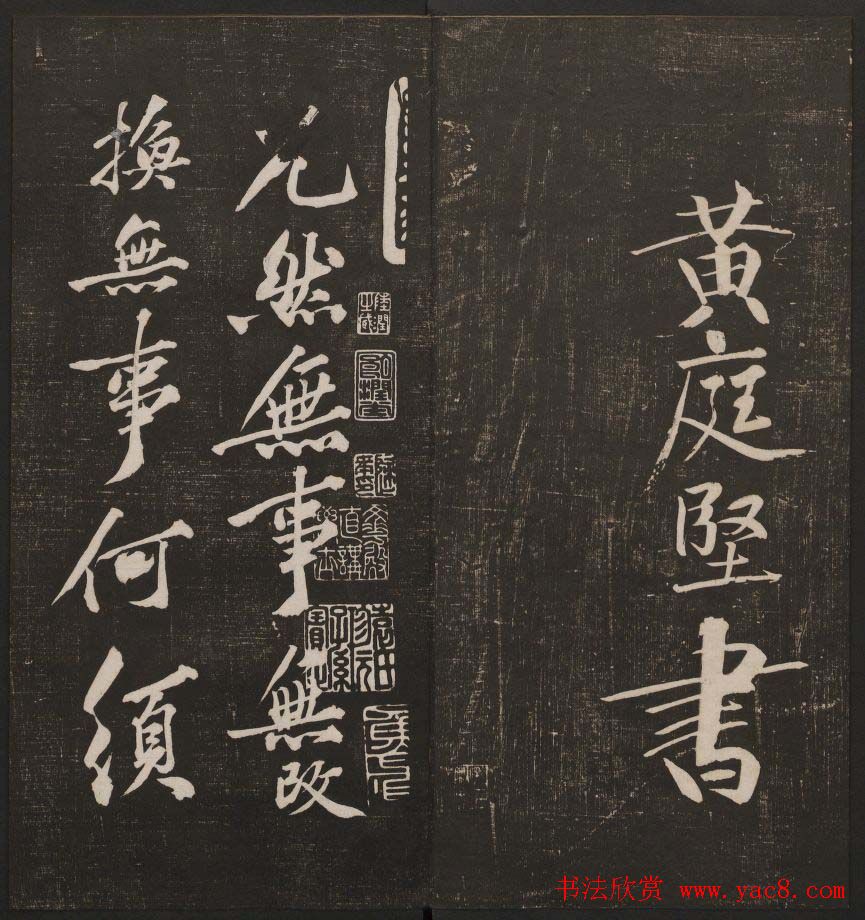 黄庭坚书
兀然無事無改
換無事何須
书法欣赏 www.yac8.com